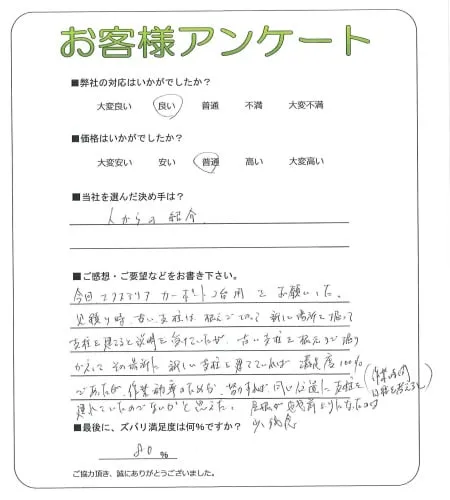 お客様アンケート
■弊社の対応はいかがでしたか?
大変良い 良い 普通 不満 大変不満
■価格はいかがでしたか?
大変安い 安い 普通 高い 大変高い
■当社を選んだ決め手は?
人からの紹介
■ご感想・ご要望などをお書き下さい。
今回エクステリアカーポート2台用をお願いした。
見積り時 古い支柱は根元で切って新しい場所を掘って
支柱を建てると説明を受けていたが、古い支柱を根元まで掘り
かえして その場所に新しい支柱を建てていれば 満足度100%
であったが、作業効率のためか、 同じ位置に支柱を
建れていたのでないかと思えた。
少し残念
■最後に、ズバリ満足度は何%ですか?
80%
ご協力頂き、誠にありがとうございました。